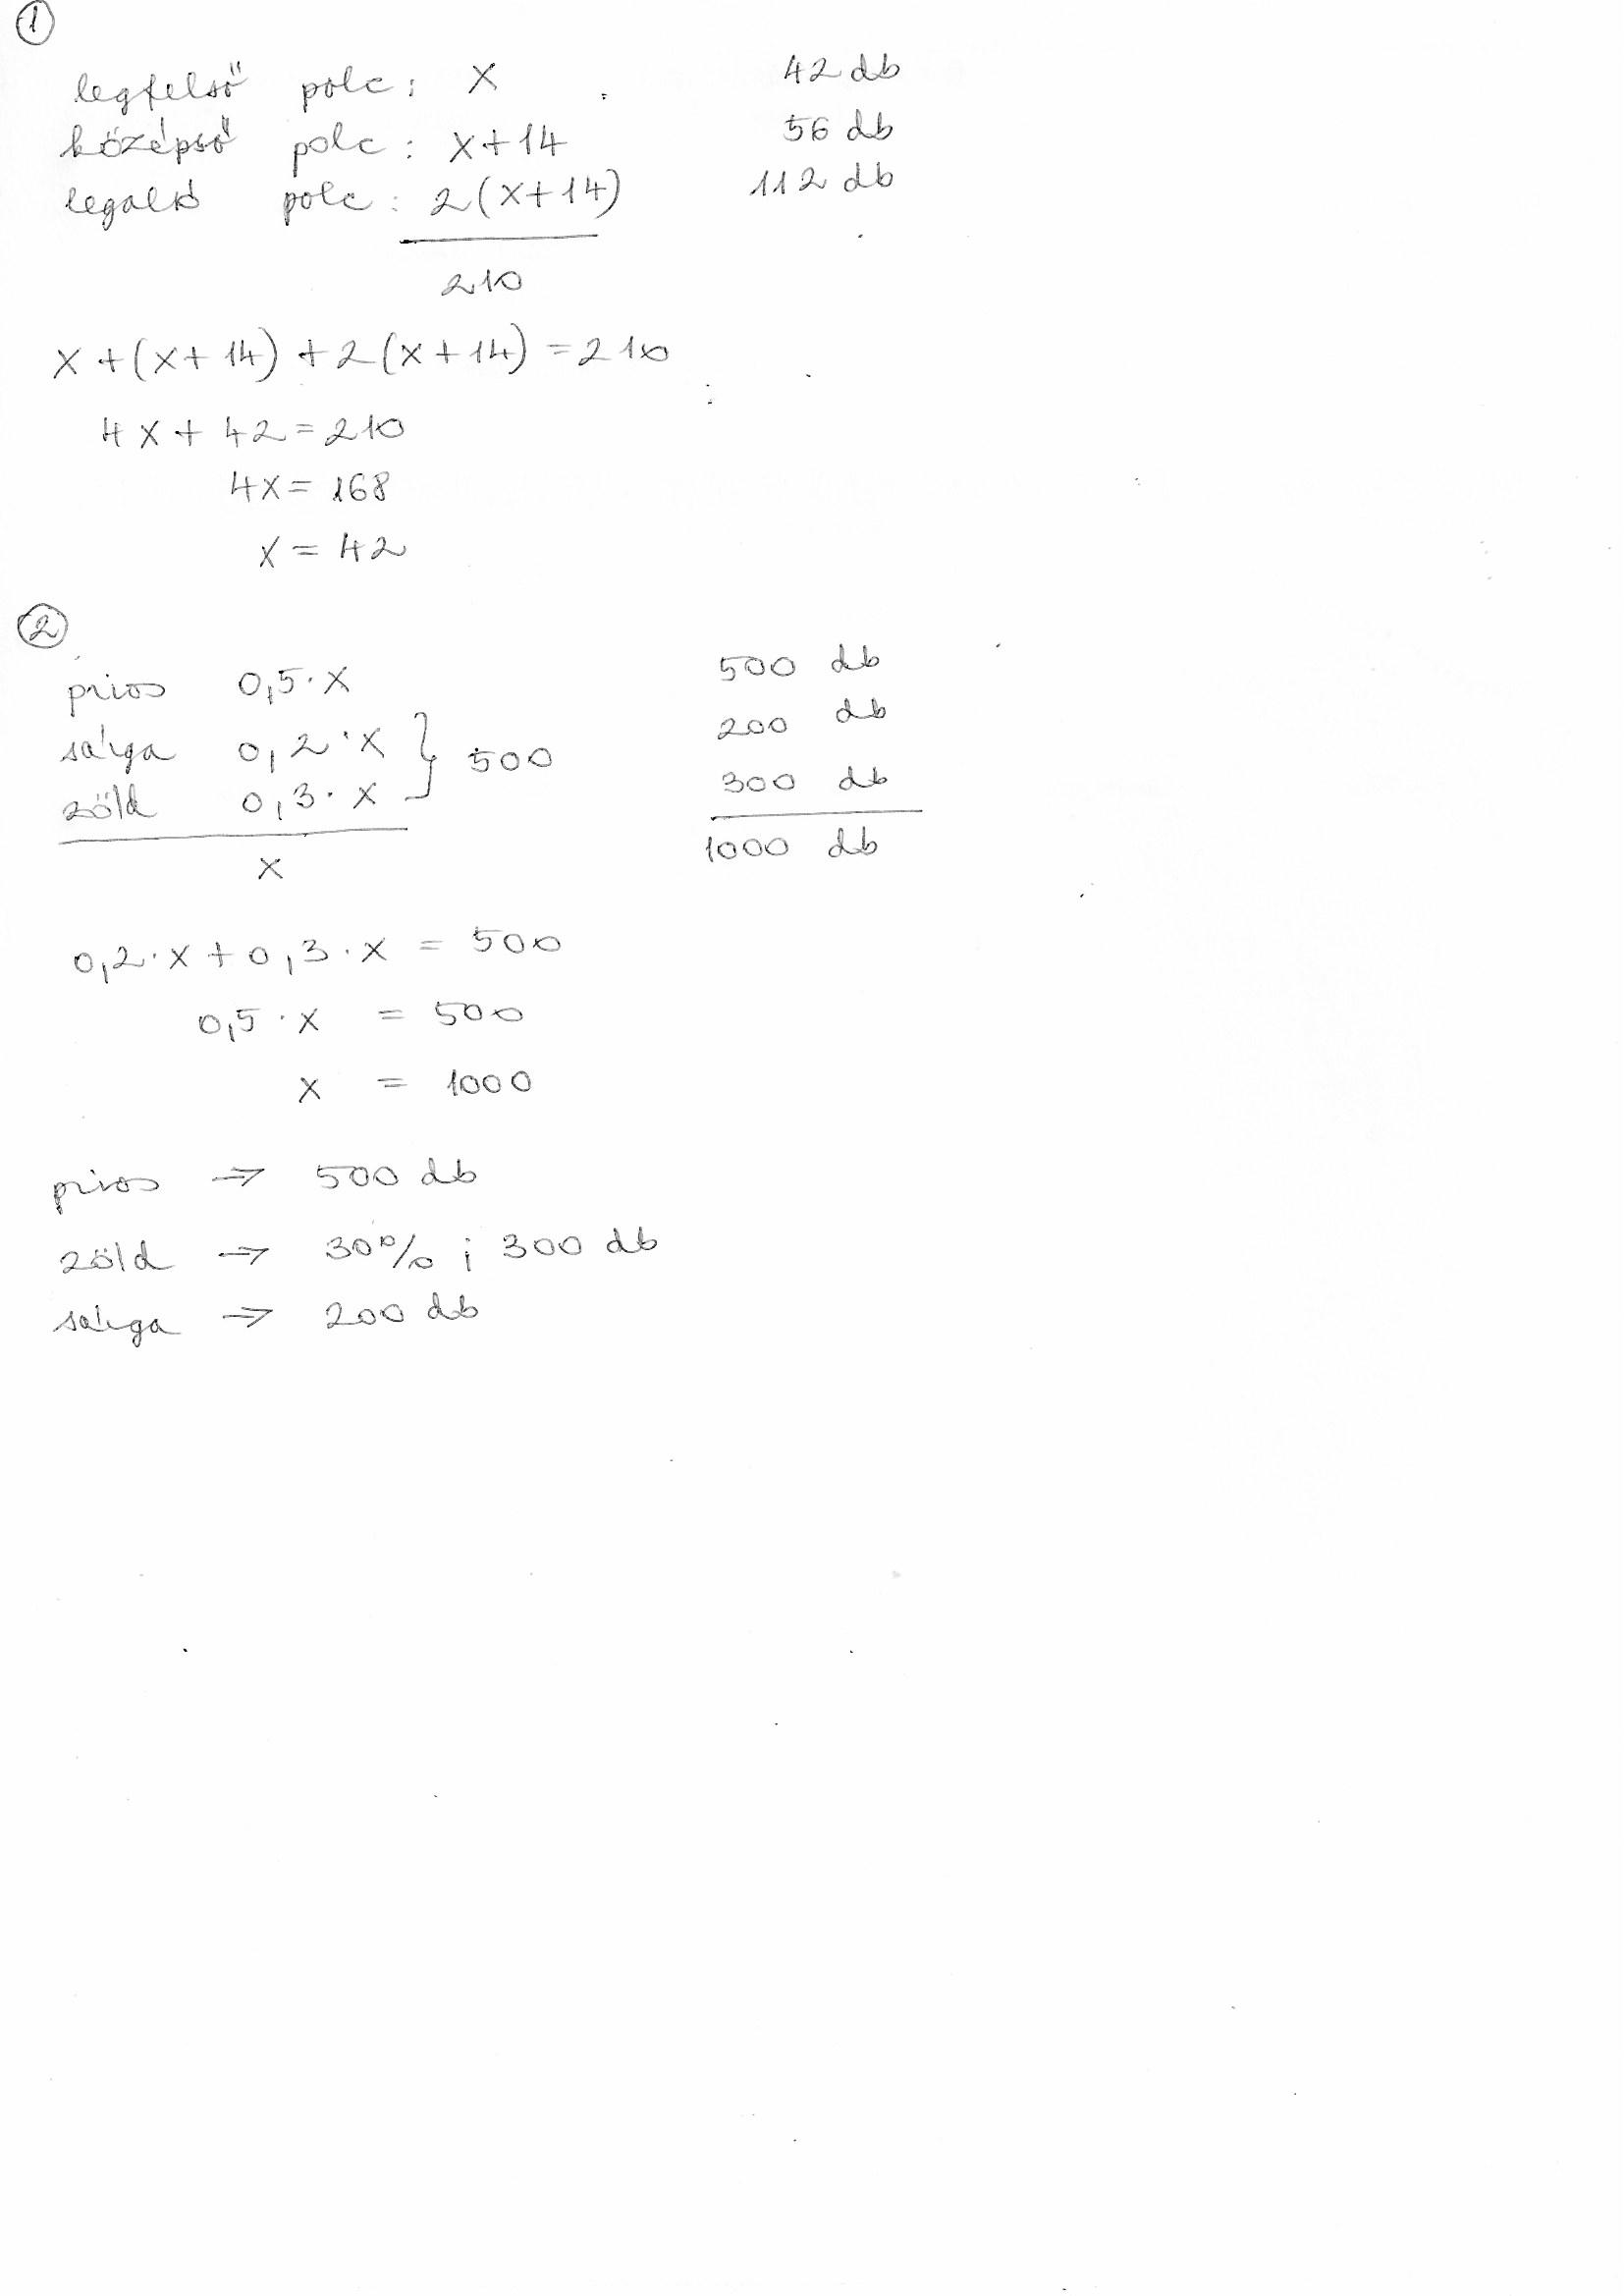 1
legfelső polc: x 42 db
középső polc: x+14 56 db
legalsó polc: 2(x+14) 112 db
210
x+(x+14)+2(x+14)=210
4x+42=210
4x=168
x=42
2
piros 0,5·x 500 db
sárga 0,2·x } 500 200 db
zöld 0,3·x 300 db
x 1000 db
0,2·x+0,3·x = 500
0,5·x = 500
x = 1000
piros ⇒ 500 db
zöld ⇒ 30% ; 300 db
sárga ⇒ 200 db